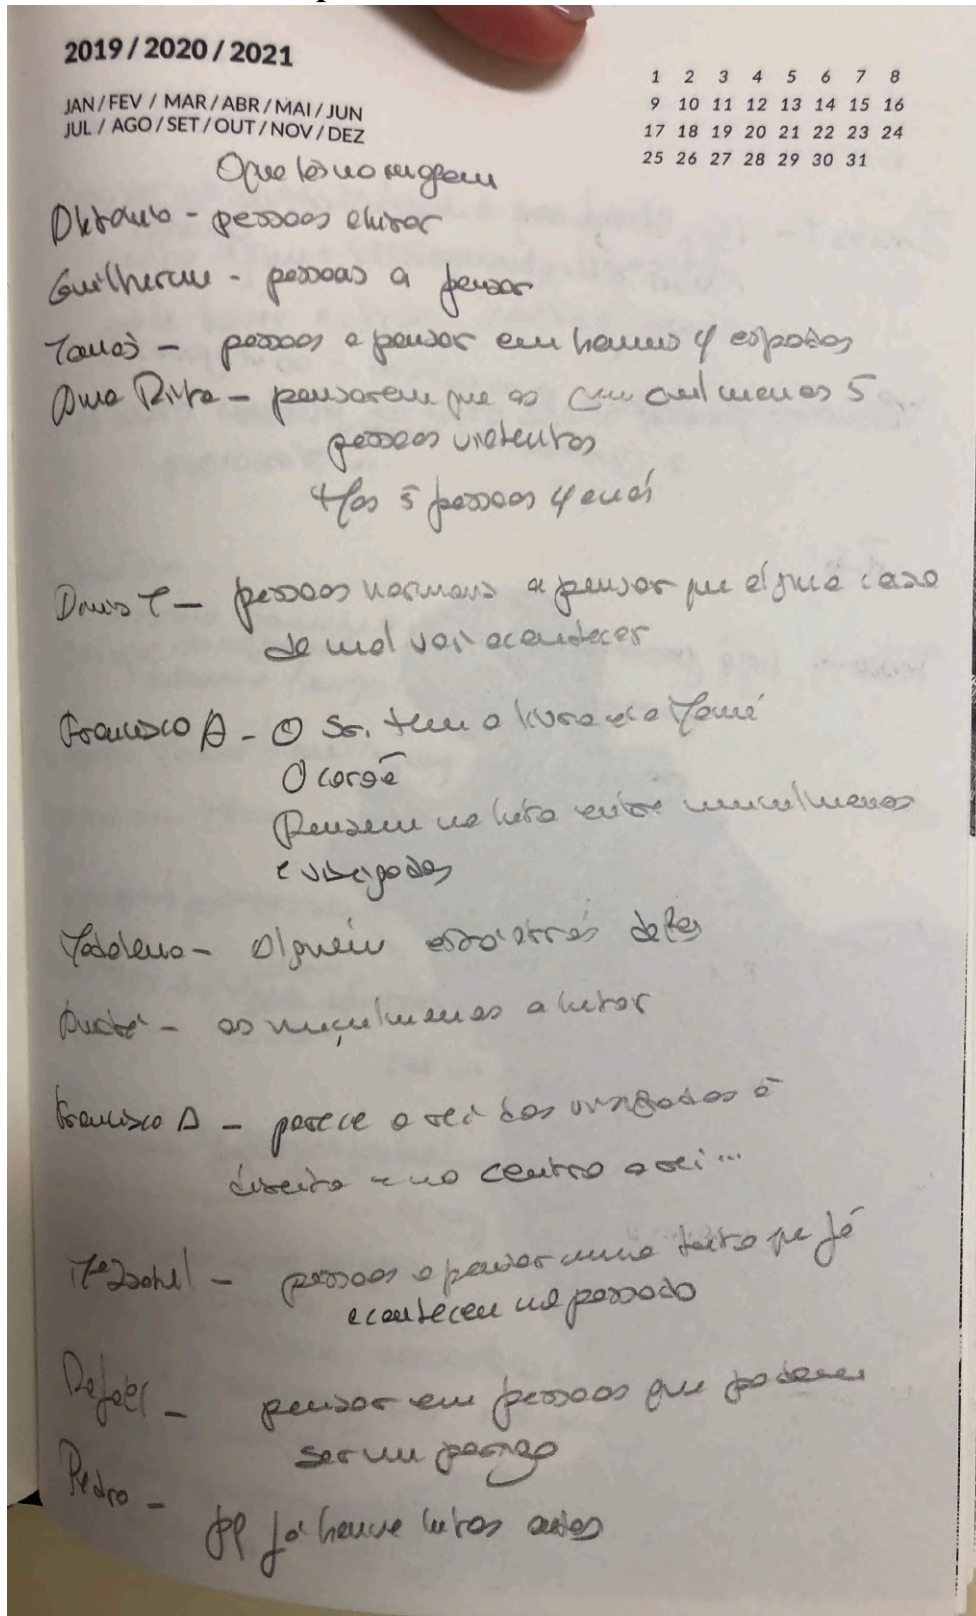 2019 / 2020 / 2021
JAN / FEV / MAR / ABR / MAI / JUN
JUL / AGO / SET / OUT / NOV / DEZ
1 2 3 4 5 6 7 8
9 10 11 12 13 14 15 16
17 18 19 20 21 22 23 24
25 26 27 28 29 30 31
O que lês na
pessoas a lutar
Guilherme - pessoas a pensar
Tomás - pessoas a pensar em 4 espadas
Ana Rita - pensarem que os menos 5
pessoas violentas
5 pessoas 4
Dinis T - pessoas normais a pensar que alguma coisa
de mal vai acontecer
Francisco A - O Sr. tem o livro de
O corão
Pensam na luta entre muculmanos
e visigodos
Madalena - Alguém está atrás deles
Duarte - os muçulmanos a lutar
Francisco D - parece o rei dos visigodos à
direita e no centro o rei...
Mª Isabel - pessoas a pensar numa luta que já
aconteceu no passado
Rafael - pensar em pessoas que podem
ser um perigo
Pedro - já houve lutas antes